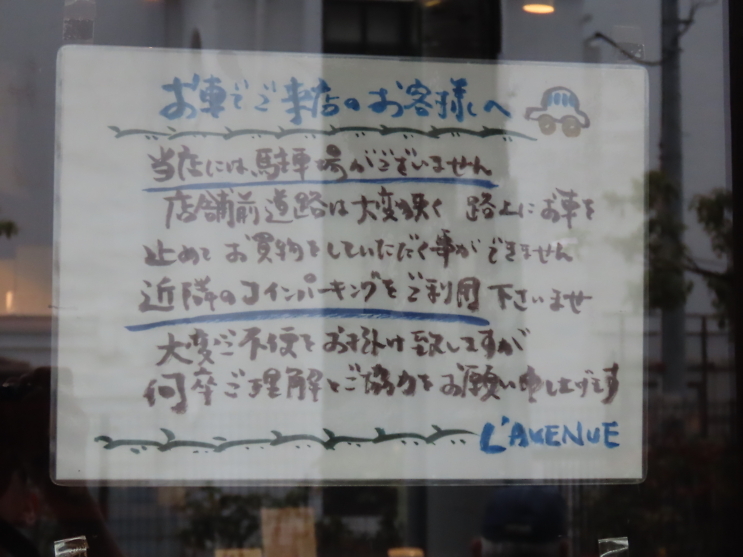 お車でご来店のお客様へ
当店には駐車場がございません
店舗前道路は大変狭く 路上にお車を
止めて お買物をしていただく事ができません
近隣のコインパーキングをご利用下さいませ
大変ご不便をお掛け致しますが
何卒ご理解とご協力をお願い申し上げます
L'AVENUE